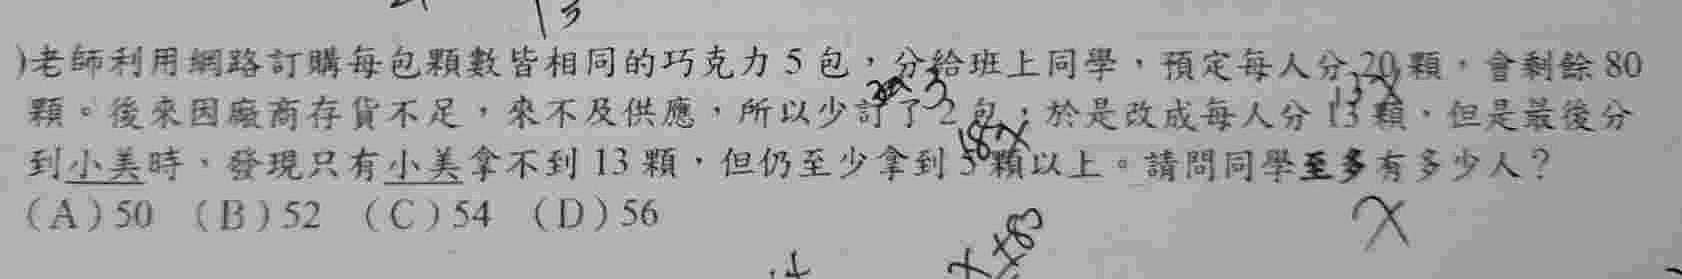 )老師利用網路訂購每包顆數皆相同的巧克力 5 包，分給班上同學，預定每人分 20 顆，會剩餘 80
顆。後來因廠商存貨不足，來不及供應，所以少訂了 2 包，於是改成每人分 13 顆，但是最後分
到小美時，發現只有小美拿不到 13 顆，但仍至少拿到 5 顆以上。請問同學至多有多少人？
(A) 50 (B) 52 (C) 54 (D) 56